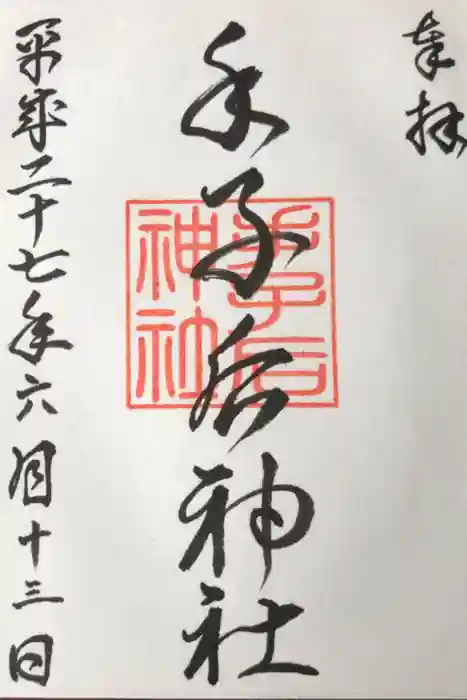 奉拝
手子后神社
手子后
神社
平成二十七年六月十三日